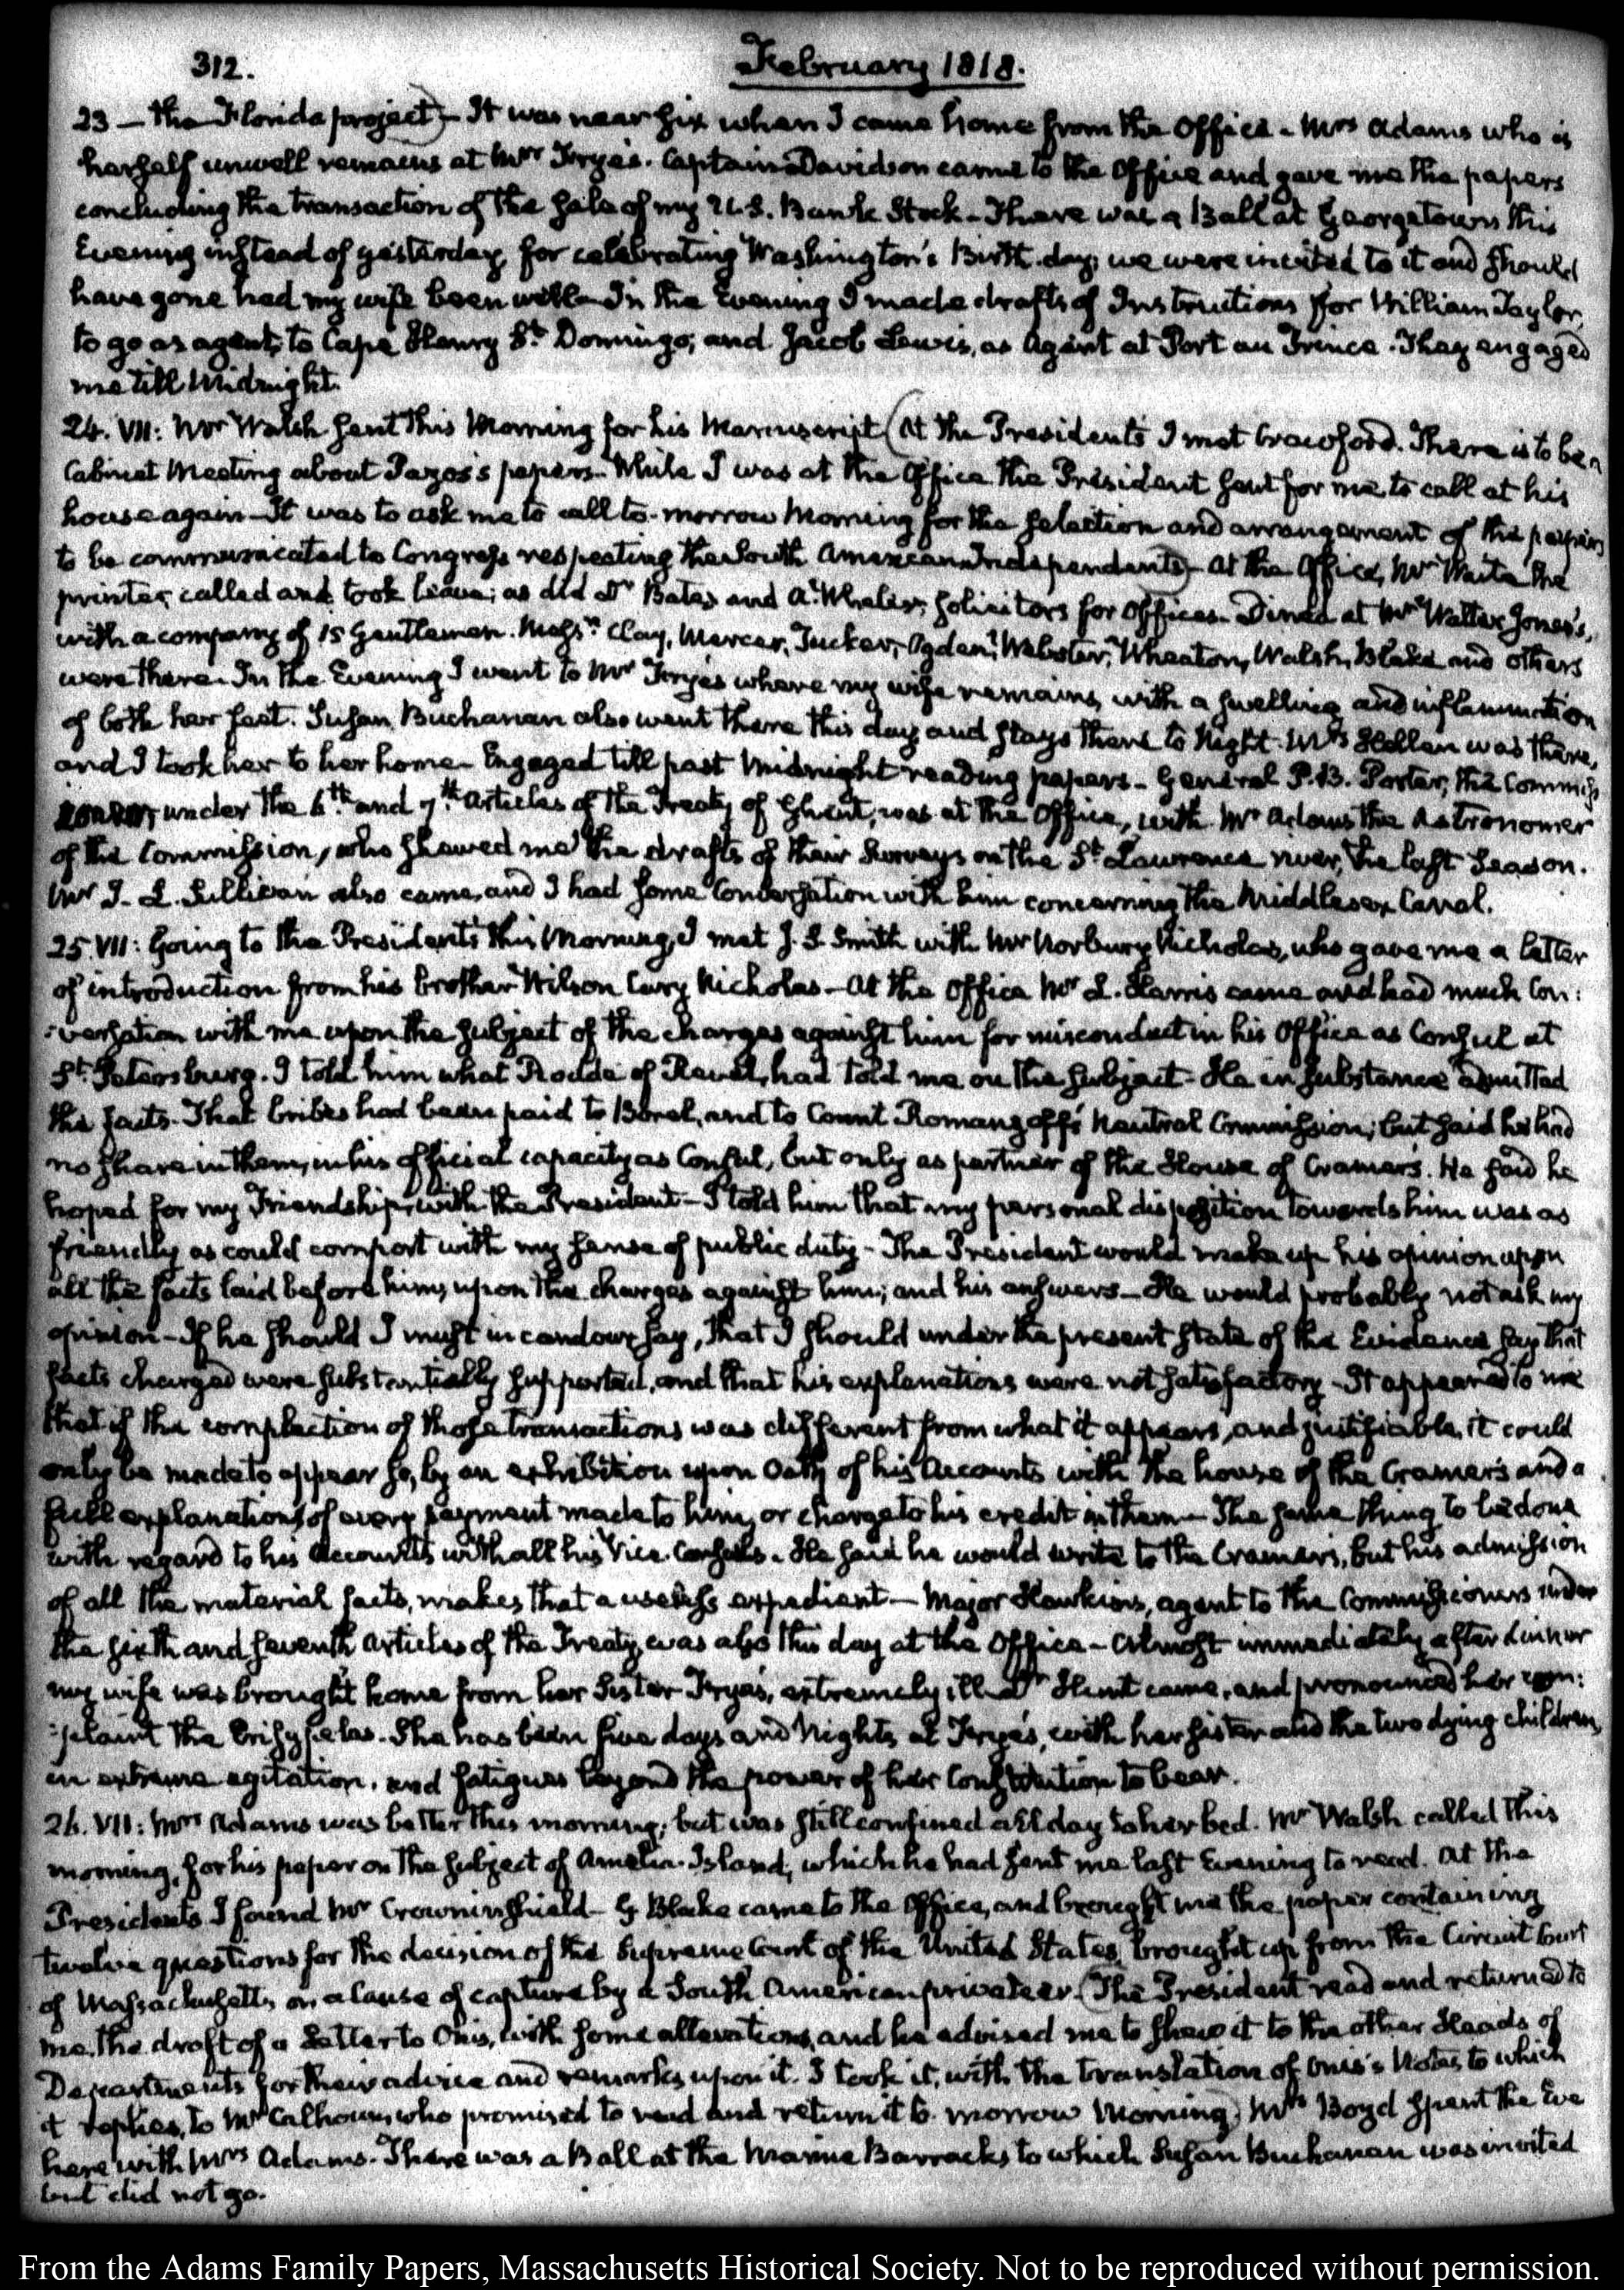 312.
February 1818.
23 — the Florida project) — It was near six when I came home from the Office. Mrs Adams who is
herself unwell remains at Mrs Frye's. Captain Davidson came to the Office and gave me the papers
concluding the transaction of the sale of my U.S. Bank Stock — There was a Ball at Georgetown this
Evening instead of yesterday, for celebrating Washington's Birth-day; we were invited to it and should
have gone had my wife been well — In the Evening I made drafts of Instructions for William Taylor,
to go as agent, to Cape Henry St. Domingo; and Jacob Lewis, as Agent at Port au Prince. They engaged
me till Midnight.
24. VII: Mr Walsh sent this Morning for his Manuscript (At the President's I met Crawford. There is to be a
Cabinet Meeting about Pazos's papers. While I was at the Office the President sent for me to call at his
house again — It was to ask me to call to-morrow Morning for the selection and arrangement of the papers
to be communicated to Congress respecting the South American Independents) — At the Office, Mr Waite the
printer called and took leave; as did Dr Bates and A. Wheeler, solicitors for Offices. Dined at Mr Walter Jones's,
with a company of 15 Gentlemen. Messrs Clay, Mercer, Tucker, Ogden, Webster, Wheaton, Walsh, Blake and others
were there. In the Evening I went to Mr Frye's where my wife remains, with a swelling and inflammation
of both her feet. Susan Buchanan also went there this day and stays there to Night. Mrs Hellen was there,
and I took her to her home — Engaged till past Midnight reading papers — General P. B. Porter, the Commiss
under the 6th and 7th articles of the Treaty of Ghent, was at the Office, with Mr Adams the Astronomer
of the Commission, who shewed me the drafts of their Surveys on the St Lawrence river, the last Season.
Mr J. L. Sullivan also came, and I had some Conversation with him concerning the Middlesex Canal.
25. VII: Going to the President's this Morning, I met J. S. Smith with Mr Norbury Nicholas, who gave me a letter
of introduction from his brother Wilson Cary Nicholas — At the Office Mr L. Harris came and had much Con:
:versation with me upon the subject of the charges against him for misconduct in his Office as Consul at
St. Petersburg. I told him what Rodde of Revel, had told me on the subject — He in substance admitted
the facts. That bribes had been paid to Borel, and to Count Romanzoff's Neutral Commission; but said he had
no share in them, in his official capacity as Consul, but only as partner of the House of Cramers. He said he
hoped for my Friendship, with the President — I told him that my personal disposition towards him was as
friendly as could comport with my sense of public duty — The President would make up his opinion upon
all the facts laid before him, upon the charges against him; and his answers — He would probably not ask my
opinion — If he should I must in candour say, that I should under the present state of the Evidence say that
facts charged were substantially supported, and that his explanations were not satisfactory — It appeared to me
that if the complection of those transactions was different from what it appears, and justifiable, it could
only be made to appear so, by an exhibition upon Oath of his Accounts with the house of the Cramers and a
full explanation of every payment made to him, or charge to his credit in them — The same thing to be done
with regard to his Accounts with all his Vice-Consuls. He said he would write to the Cramers, but his admission
of all the material facts, makes that a useless expedient — Major Hawkins, agent to the Commissioners under
the sixth and seventh articles of the Treaty, was also this day at the Office — Almost immediately after dinner
my wife was brought home from her Sister Frye's, extremely ill. Dr Hunt came, and pronounced her com:
:plaint the Erisypelas. She has been five days and Nights at Frye's, with her sister and the two dying children,
in extreme agitation, and fatigues beyond the power of her Constitution to bear.
26. VII: Mrs Adams was better this morning; but was still confined all day to her bed. Mr Walsh called this
morning, for his paper on the subject of Amelia-Island, which he had sent me last Evening to read. At the
President's I found Mr Crowninshield — G Blake came to the Office, and brought me the paper containing
twelve questions for the decision of the Supreme Court of the United States, brought up from the Circuit Court
of Massachusetts on a Cause of capture by a South American privateer. (The President read and returned to
me, the draft of a Letter to Onis, with some alterations, and he advised me to shew it to the other Heads of
Departments for their advice and remarks upon it. I took it, with the translation of Onis's Notes to which
it replies, to Mr Calhoun, who promised to read and return it to-morrow Morning) Mrs Boyd spent the Eve
here with Mrs Adams. There was a Ball at the Marine Barracks to which Susan Buchanan was invited
but did not go.
From the Adams Family Papers, Massachusetts Historical Society. Not to be reproduced without permission.